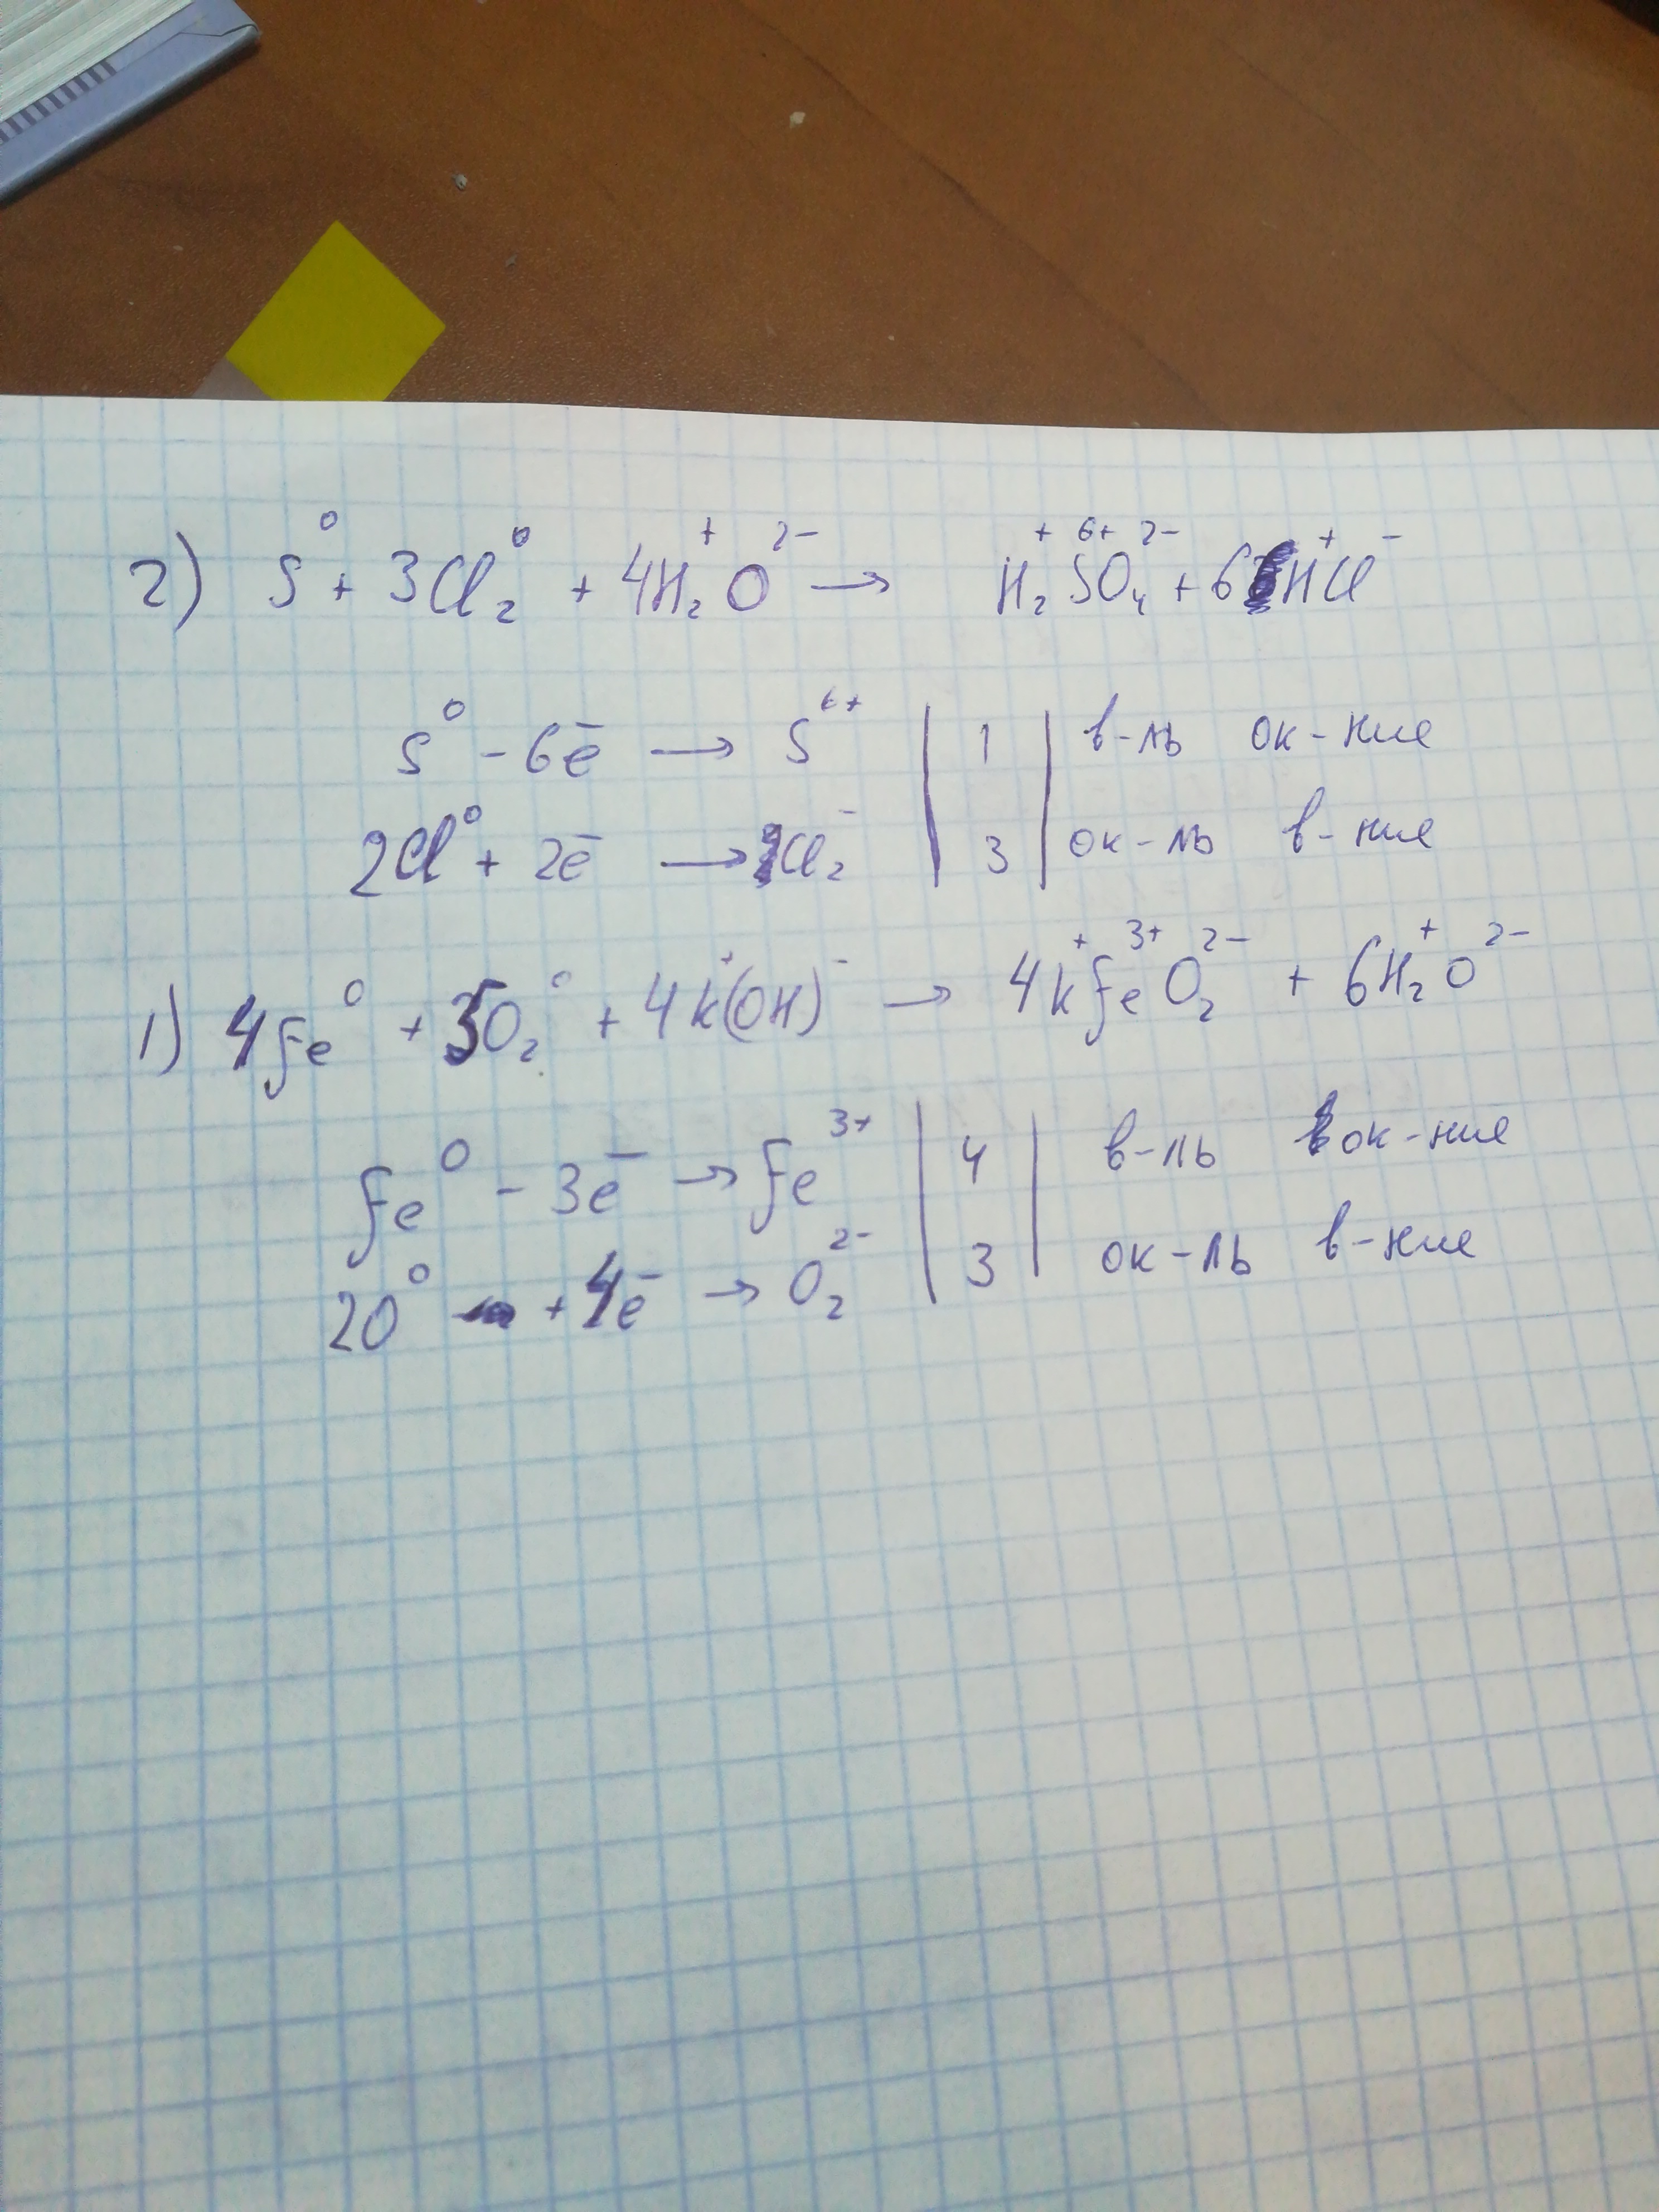 2) S⁰ + 3Cl₂⁰ + 4H₂⁺O²⁻ → H₂⁺S⁶⁺O₄²⁻ + 6H⁺Cl⁻
S⁰ - 6e̅ → S⁶⁺ | 1 | в-ль ок-ние
2Cl⁰ + 2e̅ → Cl₂⁻ | 3 | ок-ль в-ние
1) 4Fe⁰ + 5O₂⁰ + 4K⁺(OH)⁻ → 4K⁺Fe³⁺O₂²⁻ + 6H₂⁺O²⁻
Fe⁰ - 3e̅ → Fe³⁺ | 4 | в-ль ок-ние
2O⁰ + 4e̅ → O₂²⁻ | 3 | ок-ль в-ние